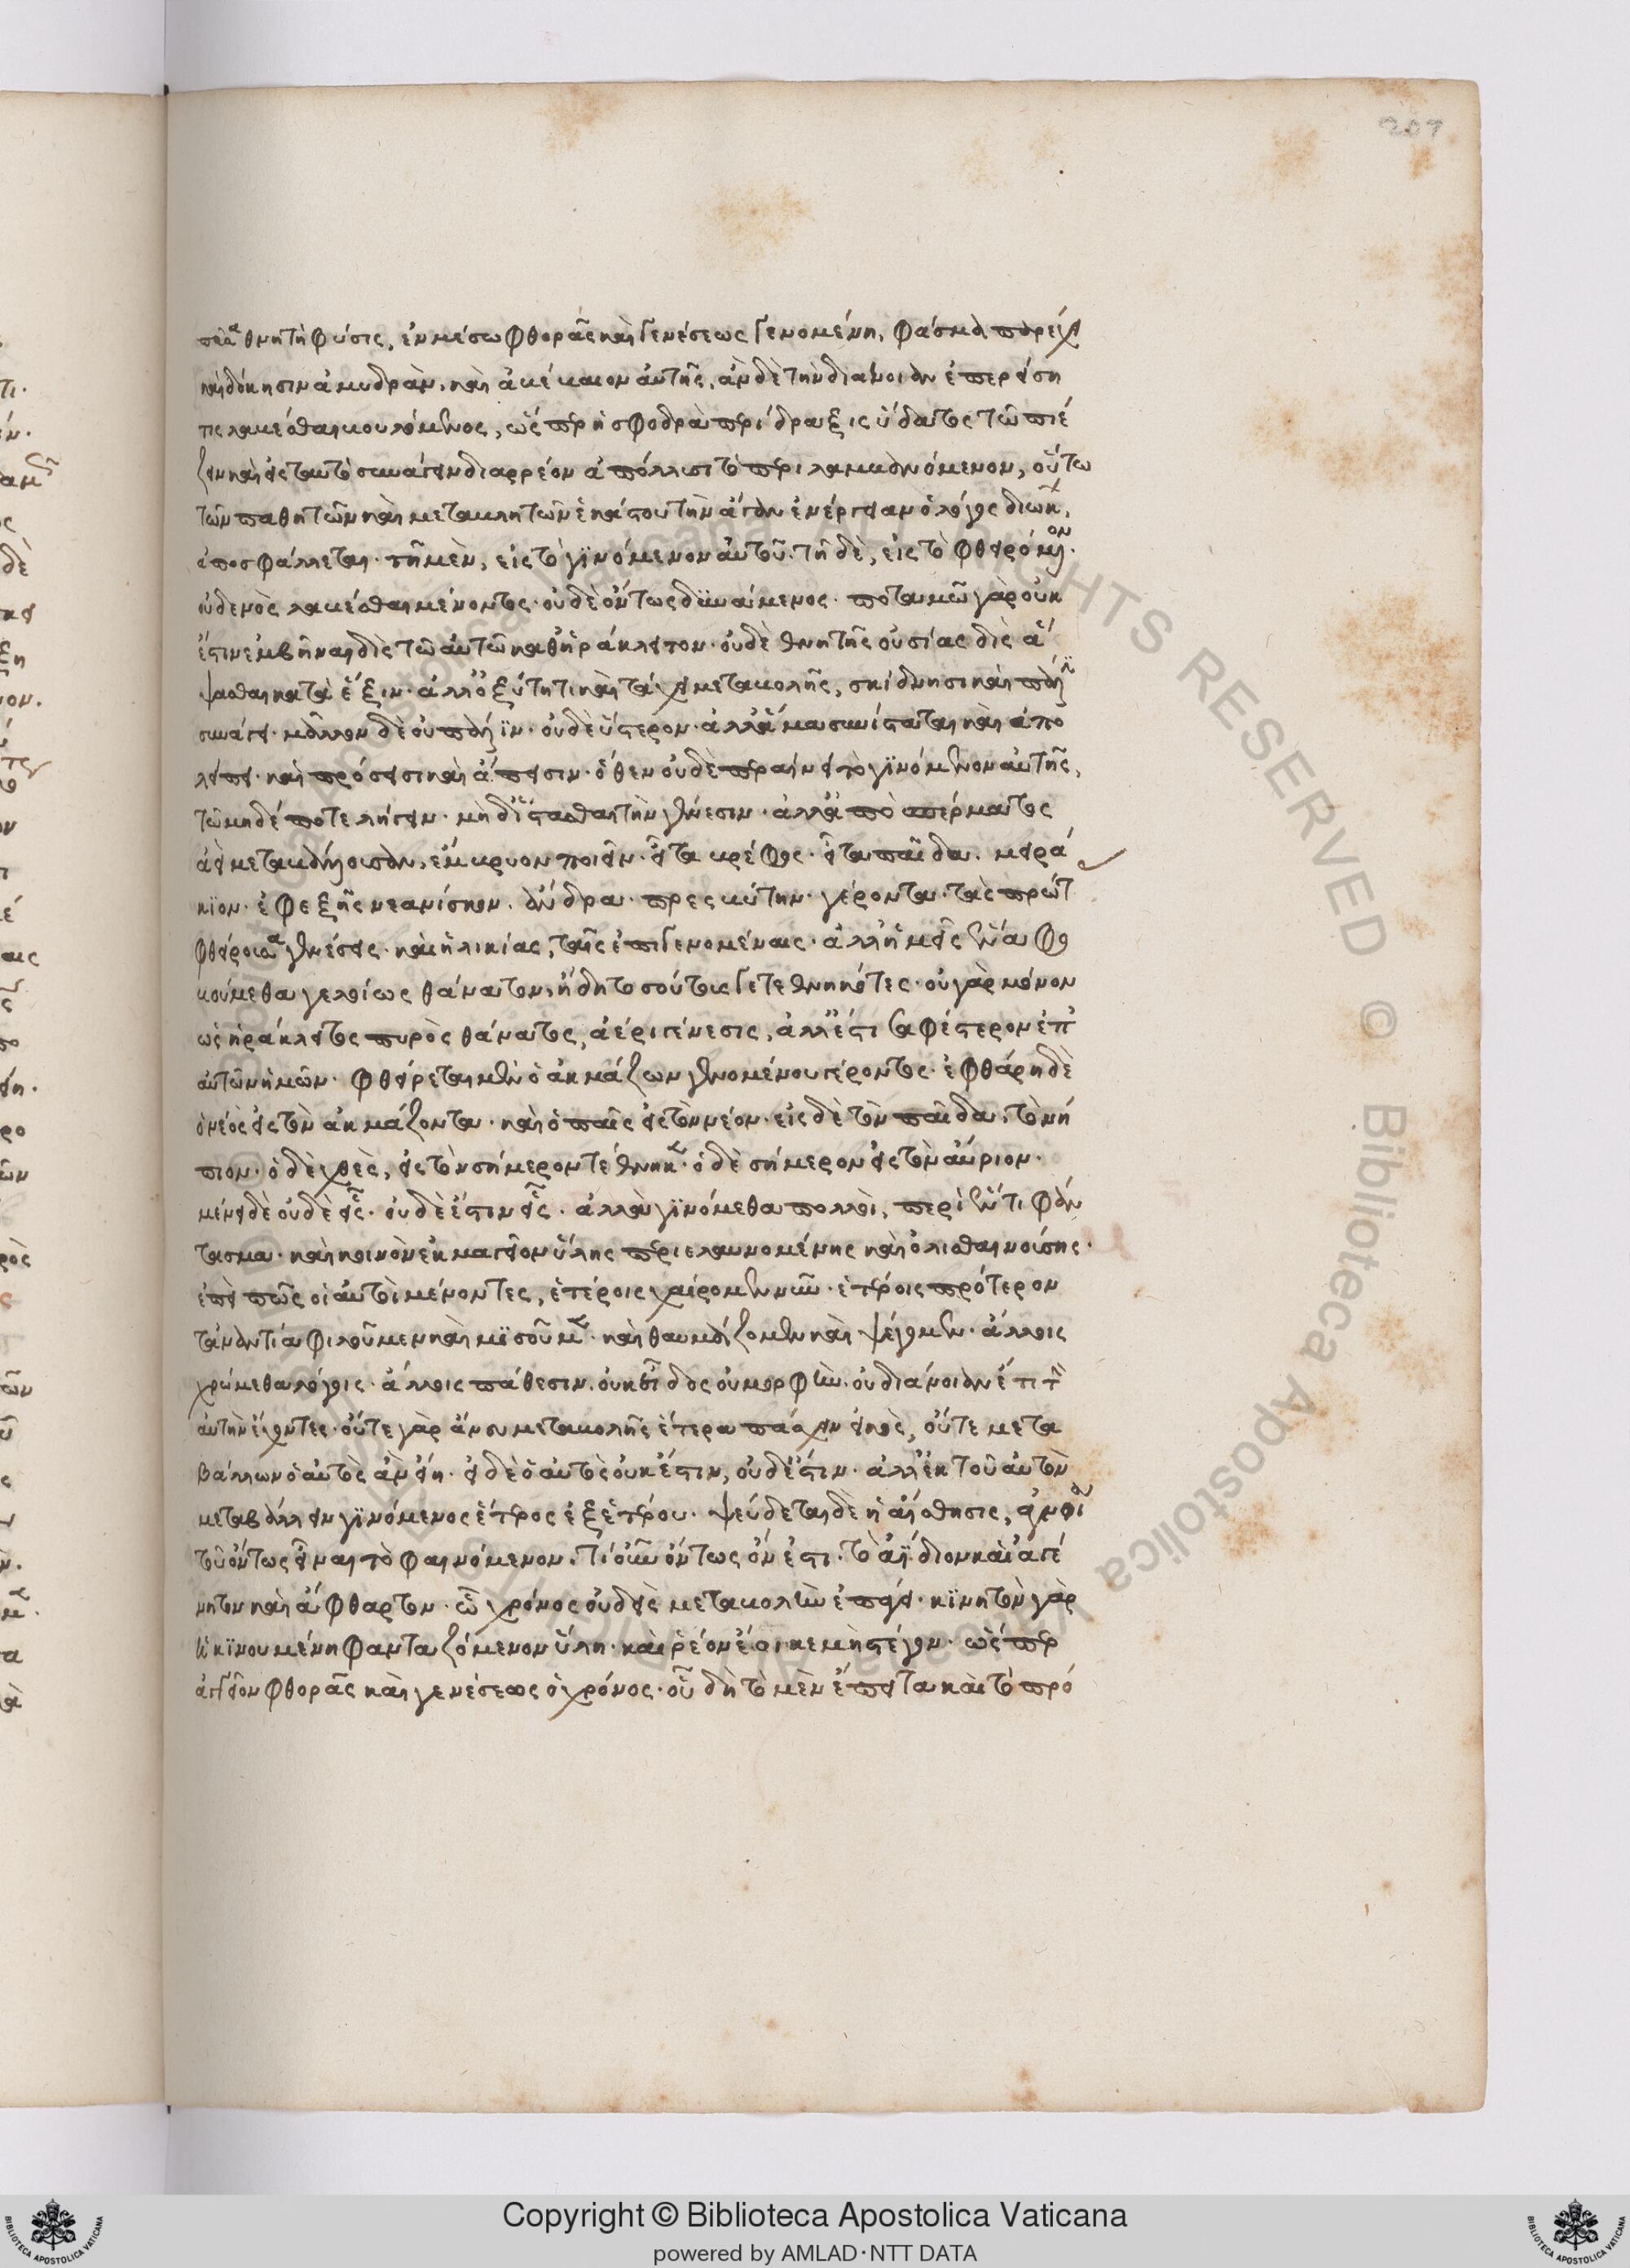 207
πᾶσα θνητὴ φύσις, ἐν μέσω φθορᾶς καὶ γενέσεως γενομένη, φάσμα παρέχει
καὶ δόκησιν ἀμυδρὰν, καὶ ἀβέβαιον αὑτῆς, ἂν δὲ τὴν διάνοιαν ἐπερείση
τις λαβέσθαι βουλόμενος, ὥσπερ ἡ σφοδρὰ περίδραξις ὕδατος τῶ πιέ
ζειν καὶ εἰς ταυτὸ συνάγειν διαρρέον ἀπόλλυσι τὸ περιλαμβανόμενον, οὕτω
τῶν παθητῶν καὶ μεταβλητῶν ἑκάστου τὴν ἄγαν ἐνέργειαν ὁ λόγος διώκων,
ἀποσφάλλεται. τῆ μὲν, εἰς τὸ γϊνόμενον αὐτοῦ. τῆ δὲ, εἰς τὸ φθειρόμενον.
οὐδενὸς λαβέσθαι μένοντος. οὐδὲ ὄντως δϋνάμενος. ποταμῶ γὰρ οὐκ
ἔστιν ἐμβῆναι δὶς τῶ αὐτῶ καθ' ἡράκλειτον. οὐδὲ θνητῆς οὐσίας δὶς ἅ
ψασθαι κατὰ ἕξιν. ἀλλ' ὀξύτητι καὶ τάχει μεταβολῆς, σκίδνησι καὶ πάλϊν
συνάγει. μᾶλλον δὲ οὐ πάλϊν. οὐδὲ ὕστερον. ἀλλ' ἅμα συνίσταται καὶ ἀπο
λείπει. καὶ πρόσεισι καὶ ἄπεισιν. ὅθεν οὐδὲ περαίνει τὸ γϊνόμενον αὐτῆς,
τῶ μηδέποτε λήγειν. μὴ δ' ἵστασθαι τὴν γένεσιν. ἀλλ' ἀπὸ σπέρματος
ἀεὶ μεταβάλλουσαν, ἔμβρυον ποιεῖν. εἶτα βρέφος. εἶτα παῖδα. μειρά
κϊον. ἐφεξῆς νεανίσκον. ἄνδρα. πρεσβύτην. γέροντα. τὰς πρώτας
φθείρουσα γενέσεις. καὶ ἡλικίας, ταῖς ἐπιγενομέναις. ἀλλ' ἡμεῖς ἕνα φο
βούμεθα γελοίως θάνατον, ἤδη τοσούτους τεθνηκότες. οὐ γὰρ μόνον
ὡς ἡράκλειτος πυρὸς θάνατος, ἀέρι γένεσις, ἀλλ' ἔτι σαφέστερον ἐπ'
αὐτῶν ἡμῶν. φθείρεται μὲν ὁ ἀκμάζων γενομένου γέροντος. ἐφθάρη δὲ
ὁ νέος εἰς τὸν ἀκμάζοντα. καὶ ὁ παῖς εἰς τὸν νέον. εἰς δὲ τὸν παῖδα, τὸ νή
πιον. ὁ δὲ χθὲς, εἰς τὸν σήμερον τέθνηκεν. ὁ δὲ σήμερον εἰς τὸν αὔριον.
μένει δὲ οὐδὲ εἷς. οὐδὲ ἔστιν εἷς. ἀλλὰ γϊνόμεθα πολλοὶ, περὶ ἕν τι φάν
τασμα. καὶ κοινὸν ἐκμαγεῖον ὕλης περιελαυνομένης καὶ ὀλισθαινούσης.
ἐπεὶ πῶς οἱ αὐτοὶ μένοντες, ἑτέροις χαίρομεν νῦν. ἑτέροις πρότερον
τἀναντία φιλοῦμεν καὶ μϊσοῦμεν. καὶ θαυμάζομεν καὶ ψέγομεν. ἄλλοις
χρώμεθα λόγοις. ἄλλοις πάθεσιν. οὐκ εἶδος οὐ μορφὴν. οὐ διάνοιαν ἔτι τὴν
αὐτὴν ἔχοντες. οὔτε γὰρ ἄνευ μεταβολῆς ἕτερα πάσχειν εἰκὸς, οὔτε μετα
βάλλων ὁ αὐτὸς ἂν εἴη. εἰ δὲ ὁ αὐτὸς οὐκ ἔστιν, οὐδ' ἔστιν. ἀλλ' ἐκ τοῦ αὐτὸν
μεταβάλλειν γϊνόμενος ἕτερος ἐξ ἑτέρου. ψεύδεται δὲ ἡ αἴσθησις, ἀγνοίᾳ
τοῦ ὄντως εἶναι τὸ φαινόμενον. τί οὖν ὄντως ὄν ἐστι. τὸ ἀΐδιον καὶ ἀγέ
νητον καὶ ἄφθαρτον. ᾧ χρόνος οὐδεὶς μεταβολὴν ἐπάγει. κϊνητὸν γὰρ
κϊνουμένη φανταζόμενον ὕλη. καὶ ῥέον ἔοικε μὴ στέγον. ὥσπερ
ἀγγεῖον φθορᾶς καὶ γενέσεως ὁ χρόνος. οὗ δὴ τὸ μὲν ἔπειτα καὶ τὸ πρό
Copyright © Biblioteca Apostolica Vaticana
powered by AMLAD·NTT DATA